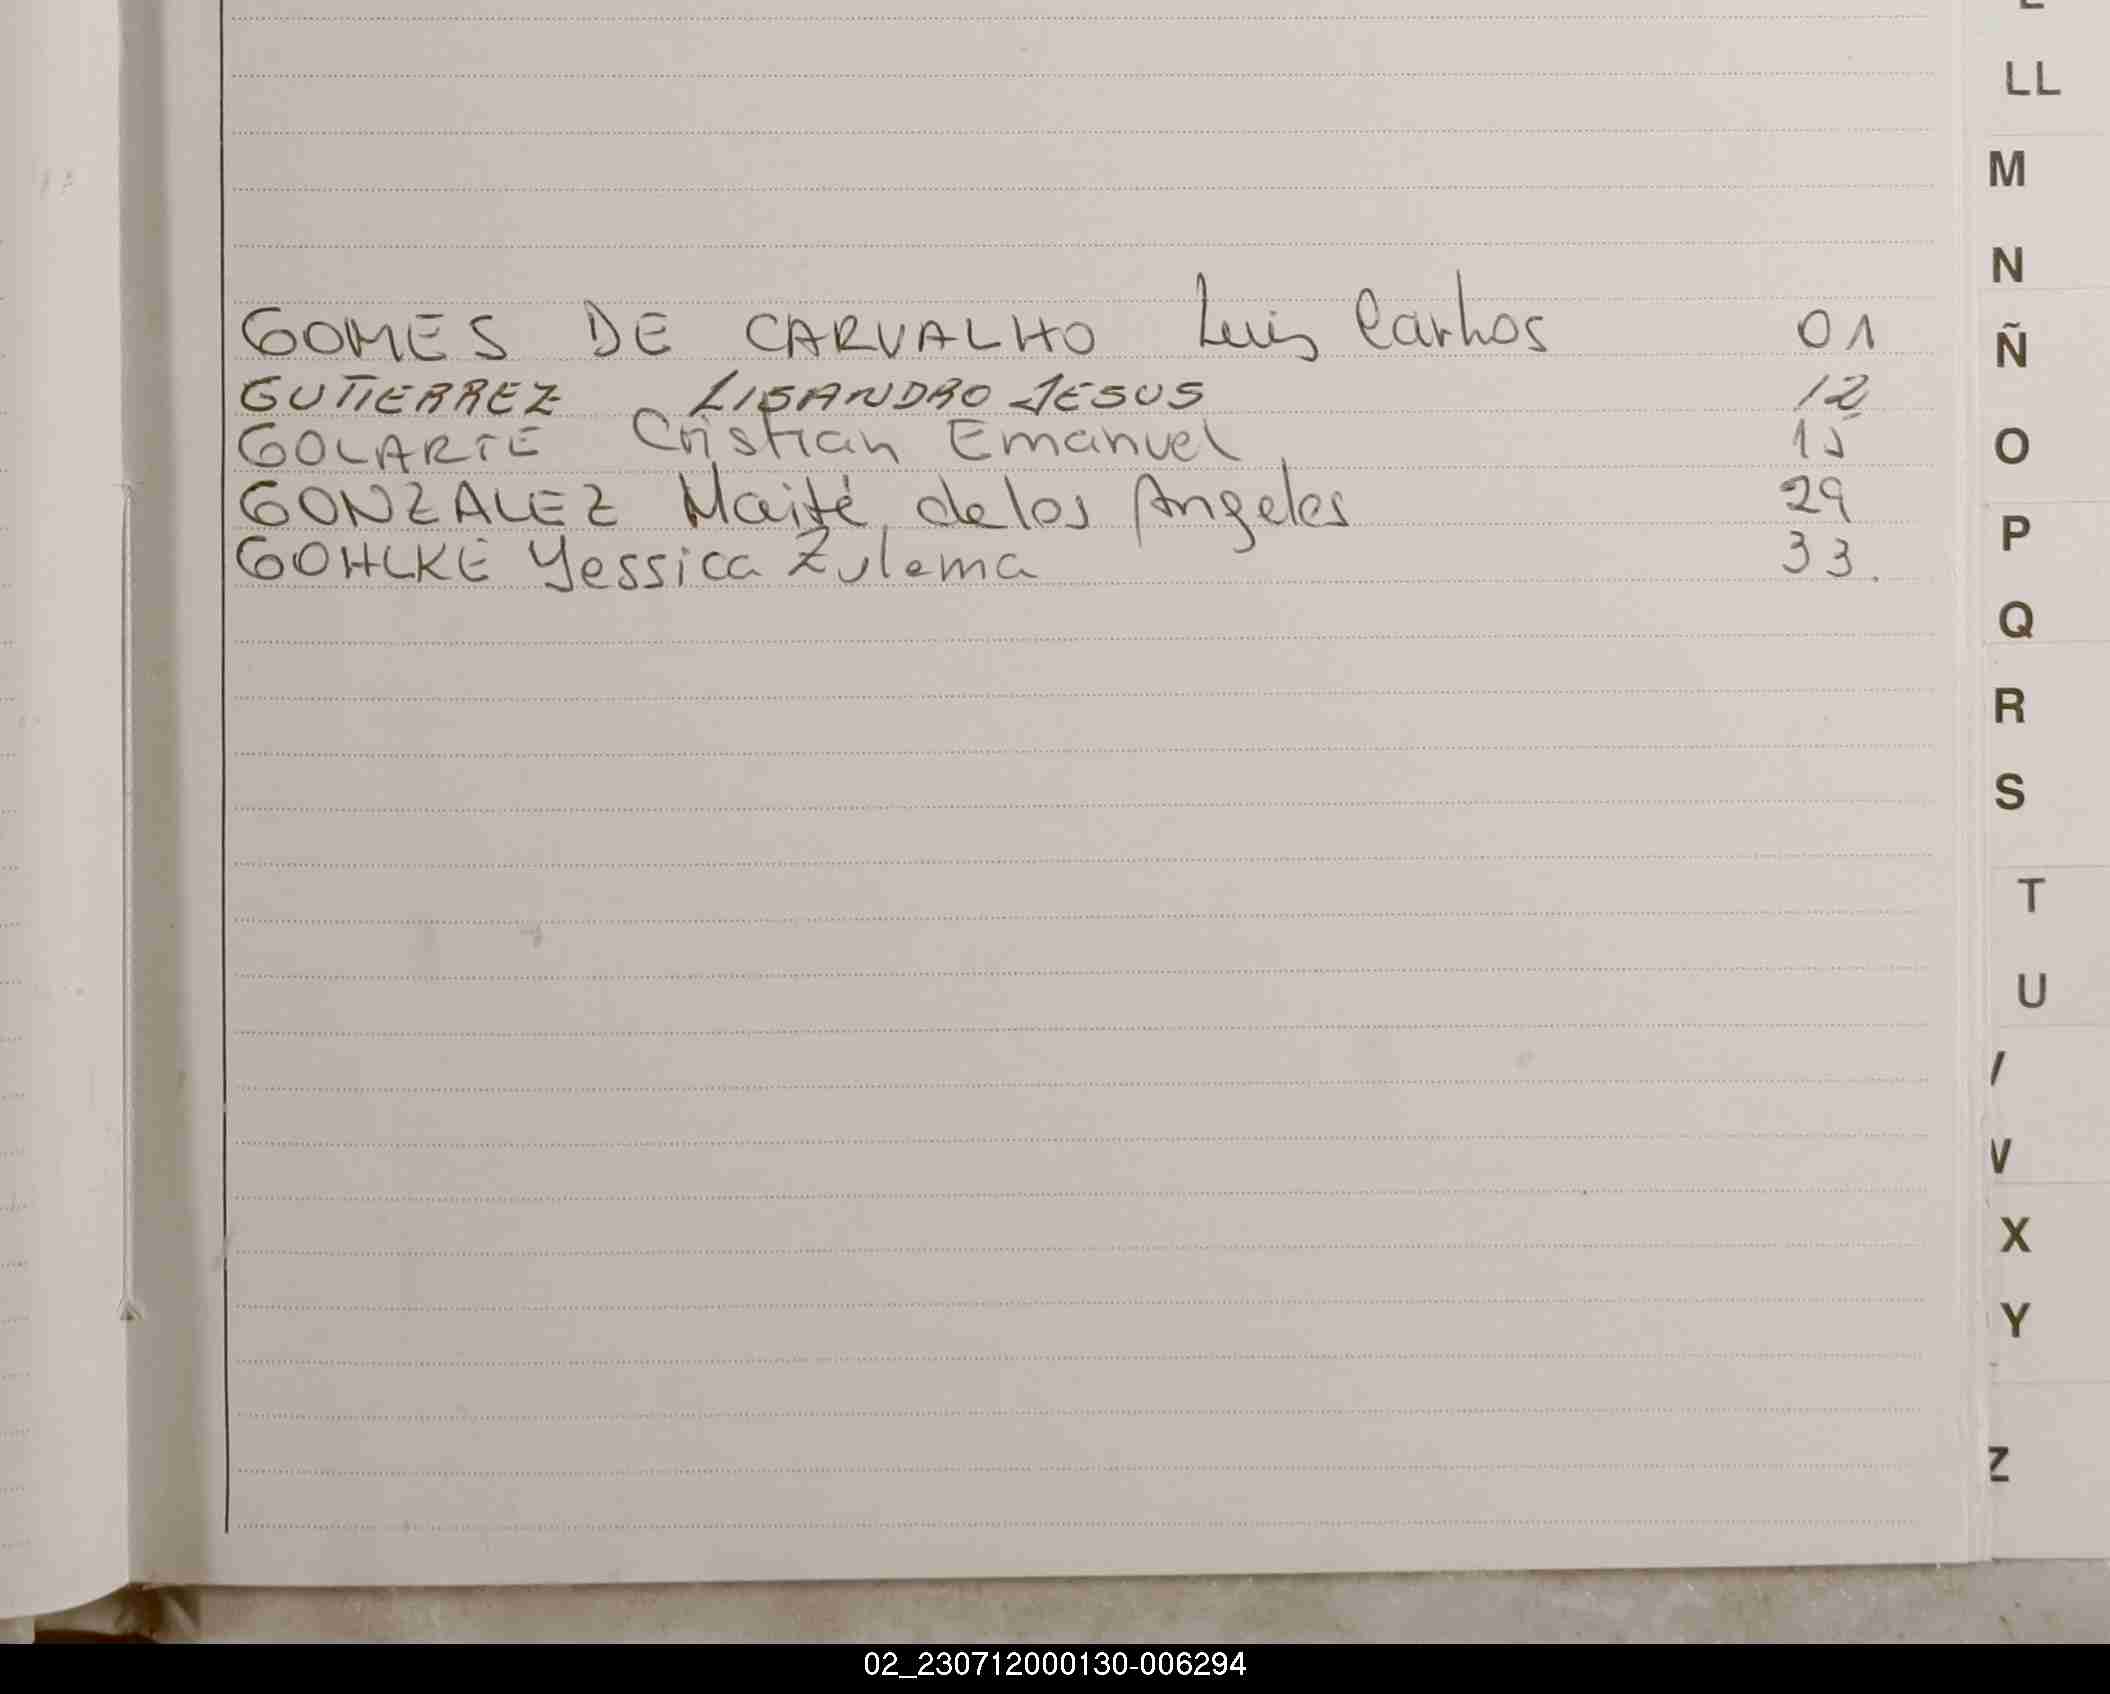 GOMES DE CARVALHO Luis Carlos 01
GUTIERREZ LISANDRO JESUS 12
GOLARTE Cristian Emanuel 15
GONZALEZ Maité de los Angeles 29
GOHLKE Yessica Zulema 33.
LL
M
N
Ñ
O
P
Q
R
S
T
U
X
Y
Z
02_230712000130-006294